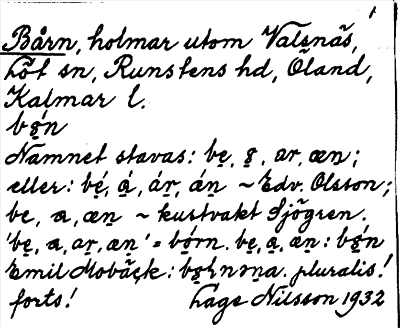 1
Bårn, holmar utom Valsnäs,
Löt sn, Runstens hd, Öland,
Kalmar l.
Namnet stavas: be, ar, æn;
eller: bé, á, ár, án ~ Edv. Olsson;
be, a, æn ~ kustvakt Sjögren.
'be, a, ar, æn' = bórn. be, a, æn:
Emil Mobäck: pluralis!
forts! Lage Nilsson 1932